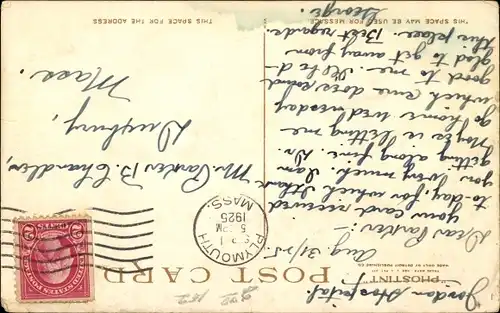 Jordan Hospital.
"PHOSTINT"
TRADE MARK
MADE ONLY BY DETROIT PUBLISHING CO.
POST CARD
Aug. 31/25.
THIS SPACE MAY BE USED FOR MESSAGE
THIS SPACE FOR THE ADDRESS
Dear Parker:-
your card received
to-day. for which I thank
you very much. I am
getting along fine. Dr.
is letting me
go home wednesday
which
good to me. I'll be
glad to get away from
this place. Best regards
George.
PLYMOUTH
SEP 1
5 PM
1925
MASS.
UNITED STATES POSTAGE
2
2
CENTS
Mr. Parker B. Chandler,
Duxbury,
Mass.